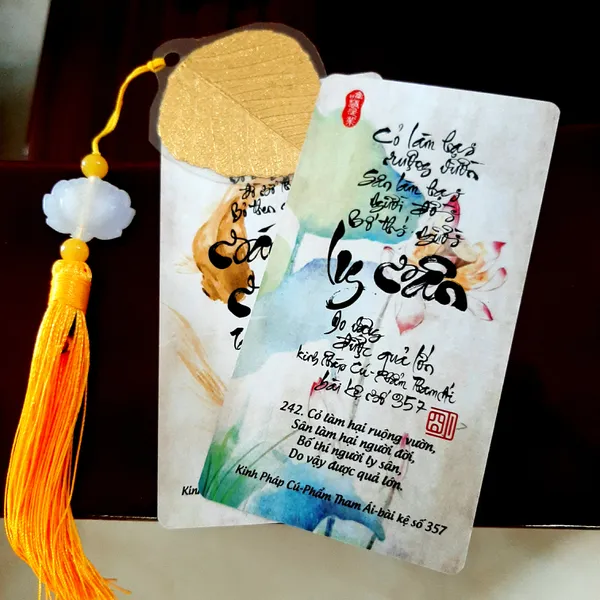 Cỏ làm hại
ruộng vườn
Sân làm hại
người đời
Bố thí người
ly sân
Do vậy
được quả lớn
kinh Pháp Cú-Phẩm Tham Ái
bài kệ số 357
242. Cỏ làm hại ruộng vườn,
Sân làm hại người đời,
Bố thí người ly sân,
Do vậy được quả lớn.
Kinh Pháp Cú-Phẩm Tham Ái-bài kệ số 357
Kin